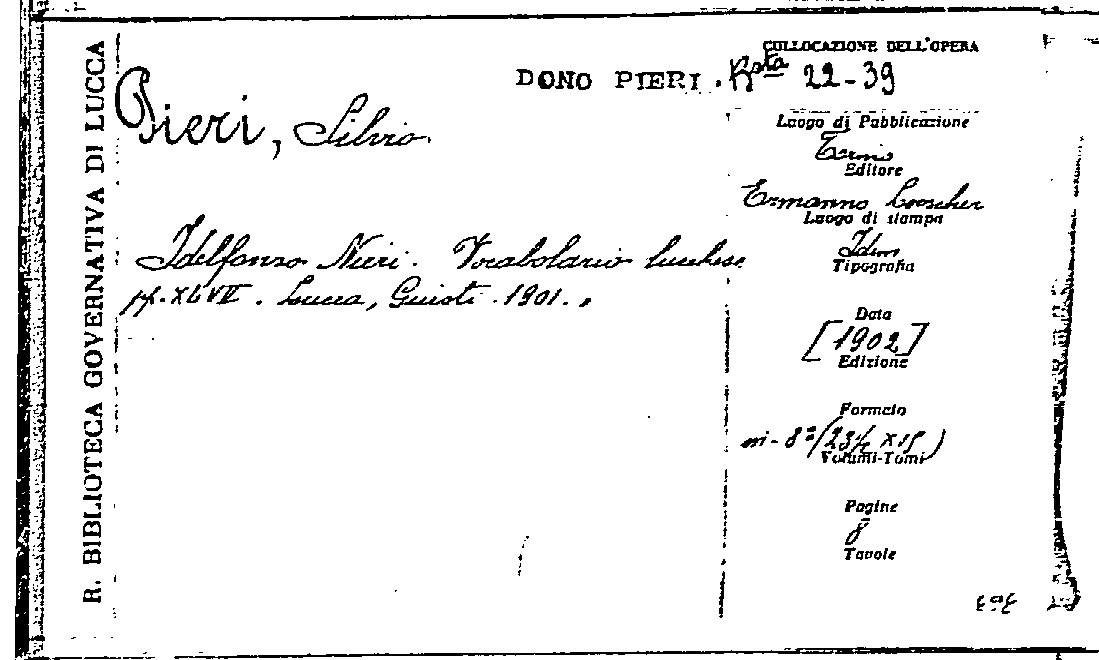 R. BIBLIOTECA GOVERNATIVA DI LUCCA
COLLOCAZIONE DELL'OPERA
DONO PIERI. Bsta 22-39
Pieri, Silvio.
Luogo di Pubblicazione
Torino
Editore
Ermanno Loescher
Luogo di stampa
Idem
Tipografia
Idelfonso Nieri. Vocabolario lucchese
pp. XLVII. Lucca, Giusti. 1901.
Data
[1902]
Edizione
Formato
in-8º (23½ x 15)
Volumi-Tomi
Pagine
8
Tavole